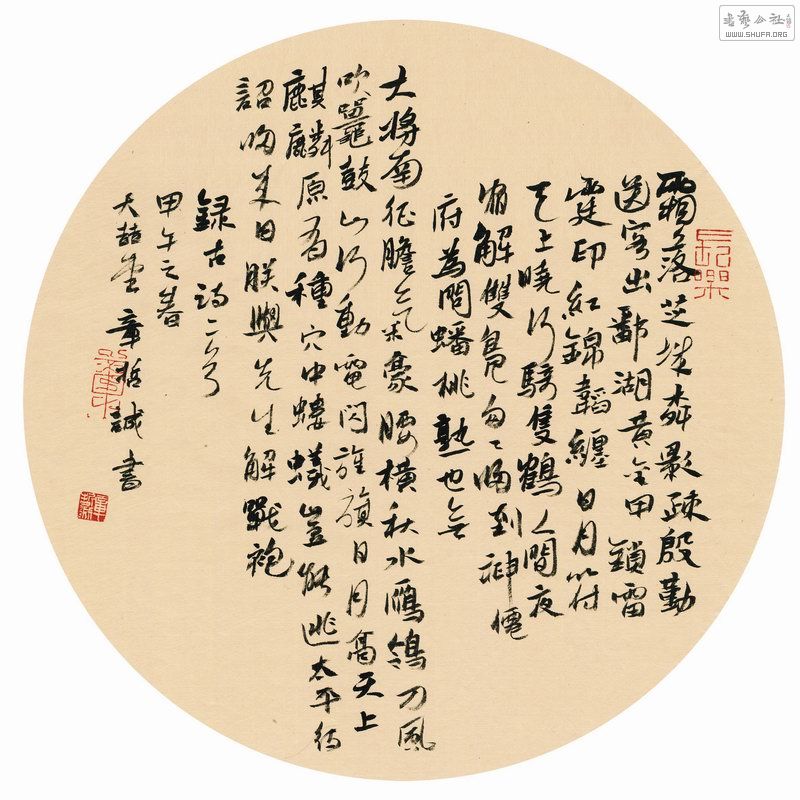 霜落芝城柳影疎殷勤
送客出鄱湖黃金甲鎖雷
霆印紅錦韜纏日月符
天上曉行騎隻鶴人間夜
宿解雙鳧匆匆歸到神僊
府為問蟠桃熟也無
大將南征膽氣豪腰橫秋水鴈翎刀風
吹鼉鼓山河動電閃旌旗日月高天上
麒麟原有種穴中螻蟻豈能逃太平待
詔歸來日朕與先生解戰袍
錄古詩二首
甲午之春
大喆堂章誠書
書藝公社
WWW.SHUFA.ORG